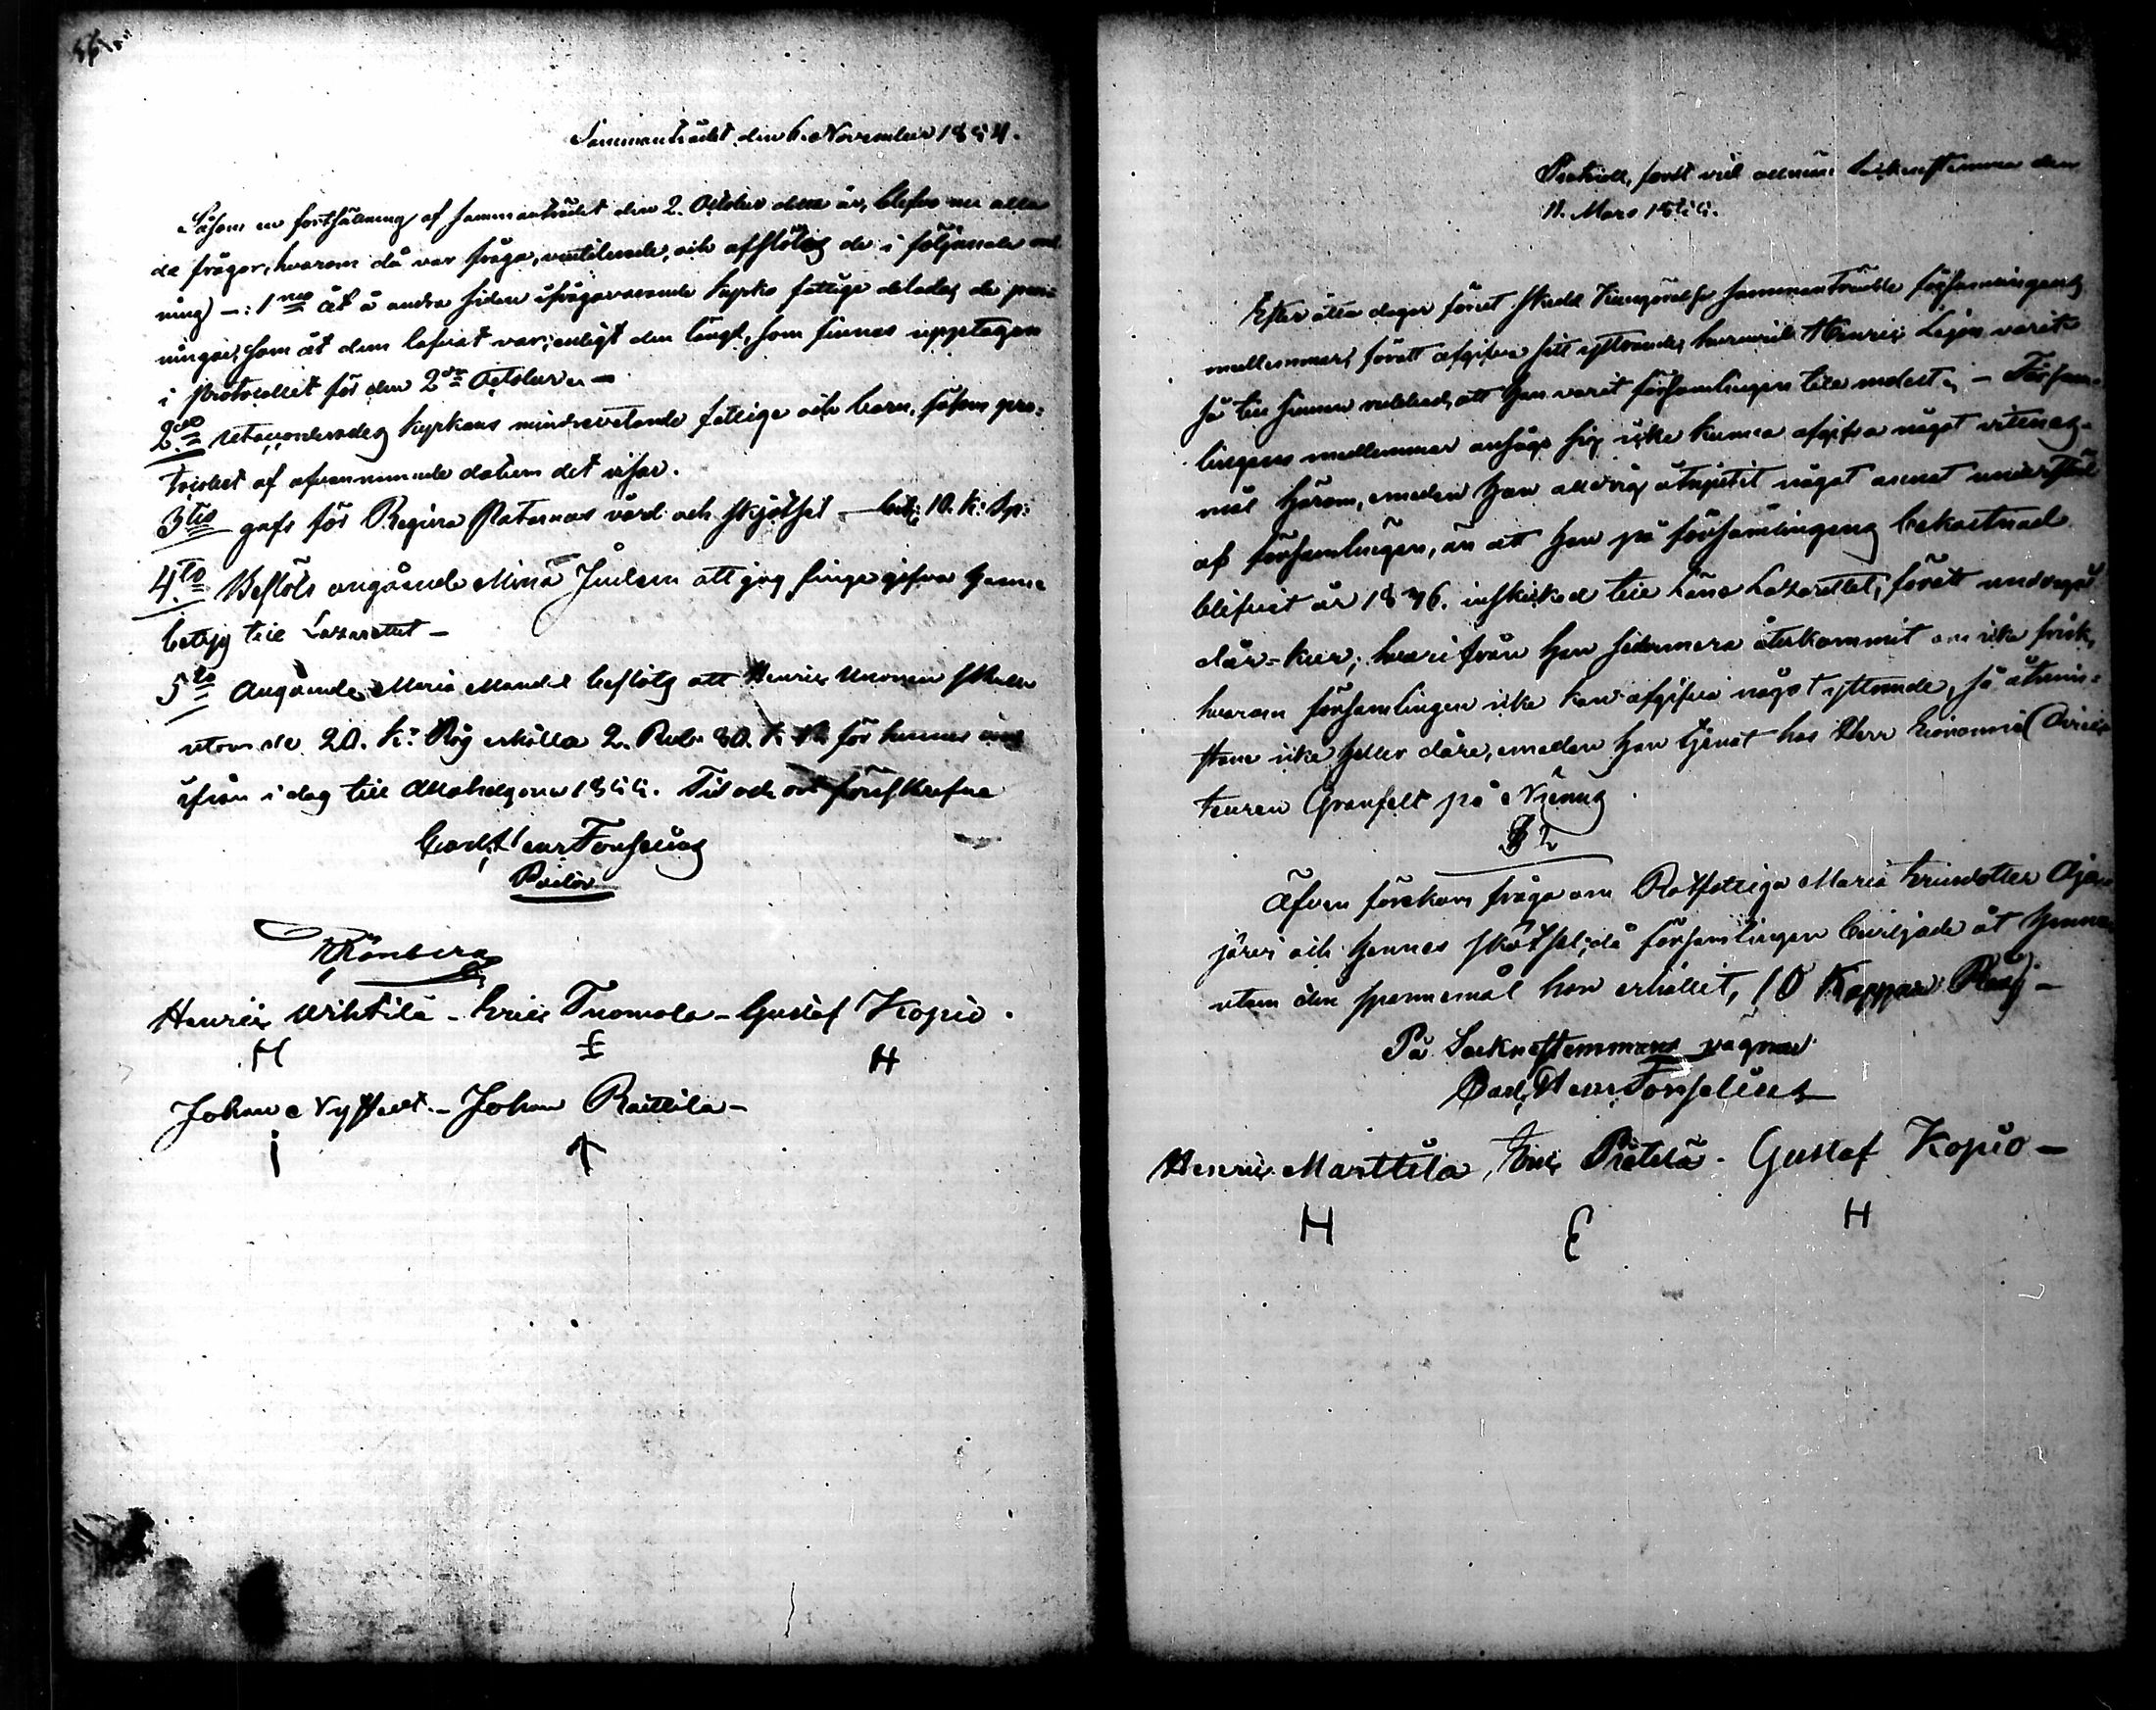 Sammanträdet den 6. November 1854.
Såsom en fortsättning af sammanträdet den 2. October detta år, blefvo nu alla
de frågor, hvarom då var fråga, ventilerade, och afslötos de i följande ord-
ning) –: 1mo åt å andra sidan ifrågavarande kyrko fattige delades de pen-
ningar, som åt dem lofvat var, enligt den längd, som finnes upptagen
i protocollet för den 2dra October. –
2do kyrkans mindrevetande fattige och barn, såsom pro-
tocollet af ofvannämnde datum det visar.
3tio gafs för Regina Paternas vård och skjötsel – 10. K. Sp:
4to Beslöts angående Mina Juslen att jag finge gifva henne
betyg till Lazarettet –
5to Angående Maria Mandel beslöts att Henric Unonen skulle
utom de 20. K:r Råg erhålla 2. Rub. 80. K. för hennes
ifrån i dag till Allahelgona 1855. Tid och ort förutskrefne
Carl Henr Forselius
Pastor
Rönberg
Henric Uihtilä – Eric Tuomola – Gustaf Kopio.
H E H
Johan Nyster – Johan Raittila –
Protocoll, fördt vid allmän Sockenstemma den
11. Mars 1855.
Efter åtta dagar förut skedd Kungörelse sammanträdde församlingens
medlemmar, föratt afgifva sitt yttrande, huruvida Henric Lejon varit
så till sinnen rubbad, att han varit församlingen till molest, – Försam-
lingens medlemmar ansågo sig icke kunna afgifva något vitnes-
mål härom, emedan han alldrig åtnjutit något annat understöd
af församlingen, än att han på församlingens bekostnad
blifvit år 1836. inskickad till Läns Lazarettet, föratt undergå
dår-kur; hvarifrån han sedermera återkommit om icke frisk,
hvarom församlingen icke kan afgifva något yttrande, så åtmin-
stone icke heller dåre, emedan han tjenat hos Herr Economie Direc-
teuren Granfelt på Njemis
§ 2
Äfven förekom fråga om Rotfattiga Maria Ericsdotter Aja-
järvi och hennes skötsel; då församlingen beviljade åt henne
utom den spannemål hon erhållet, 10 Kappar Råg –
På Sockenstemmans vägnar
Carl Henr Forselius
Henric Marttila, Eric Pietilä. Gustaf Kopio –
H E H